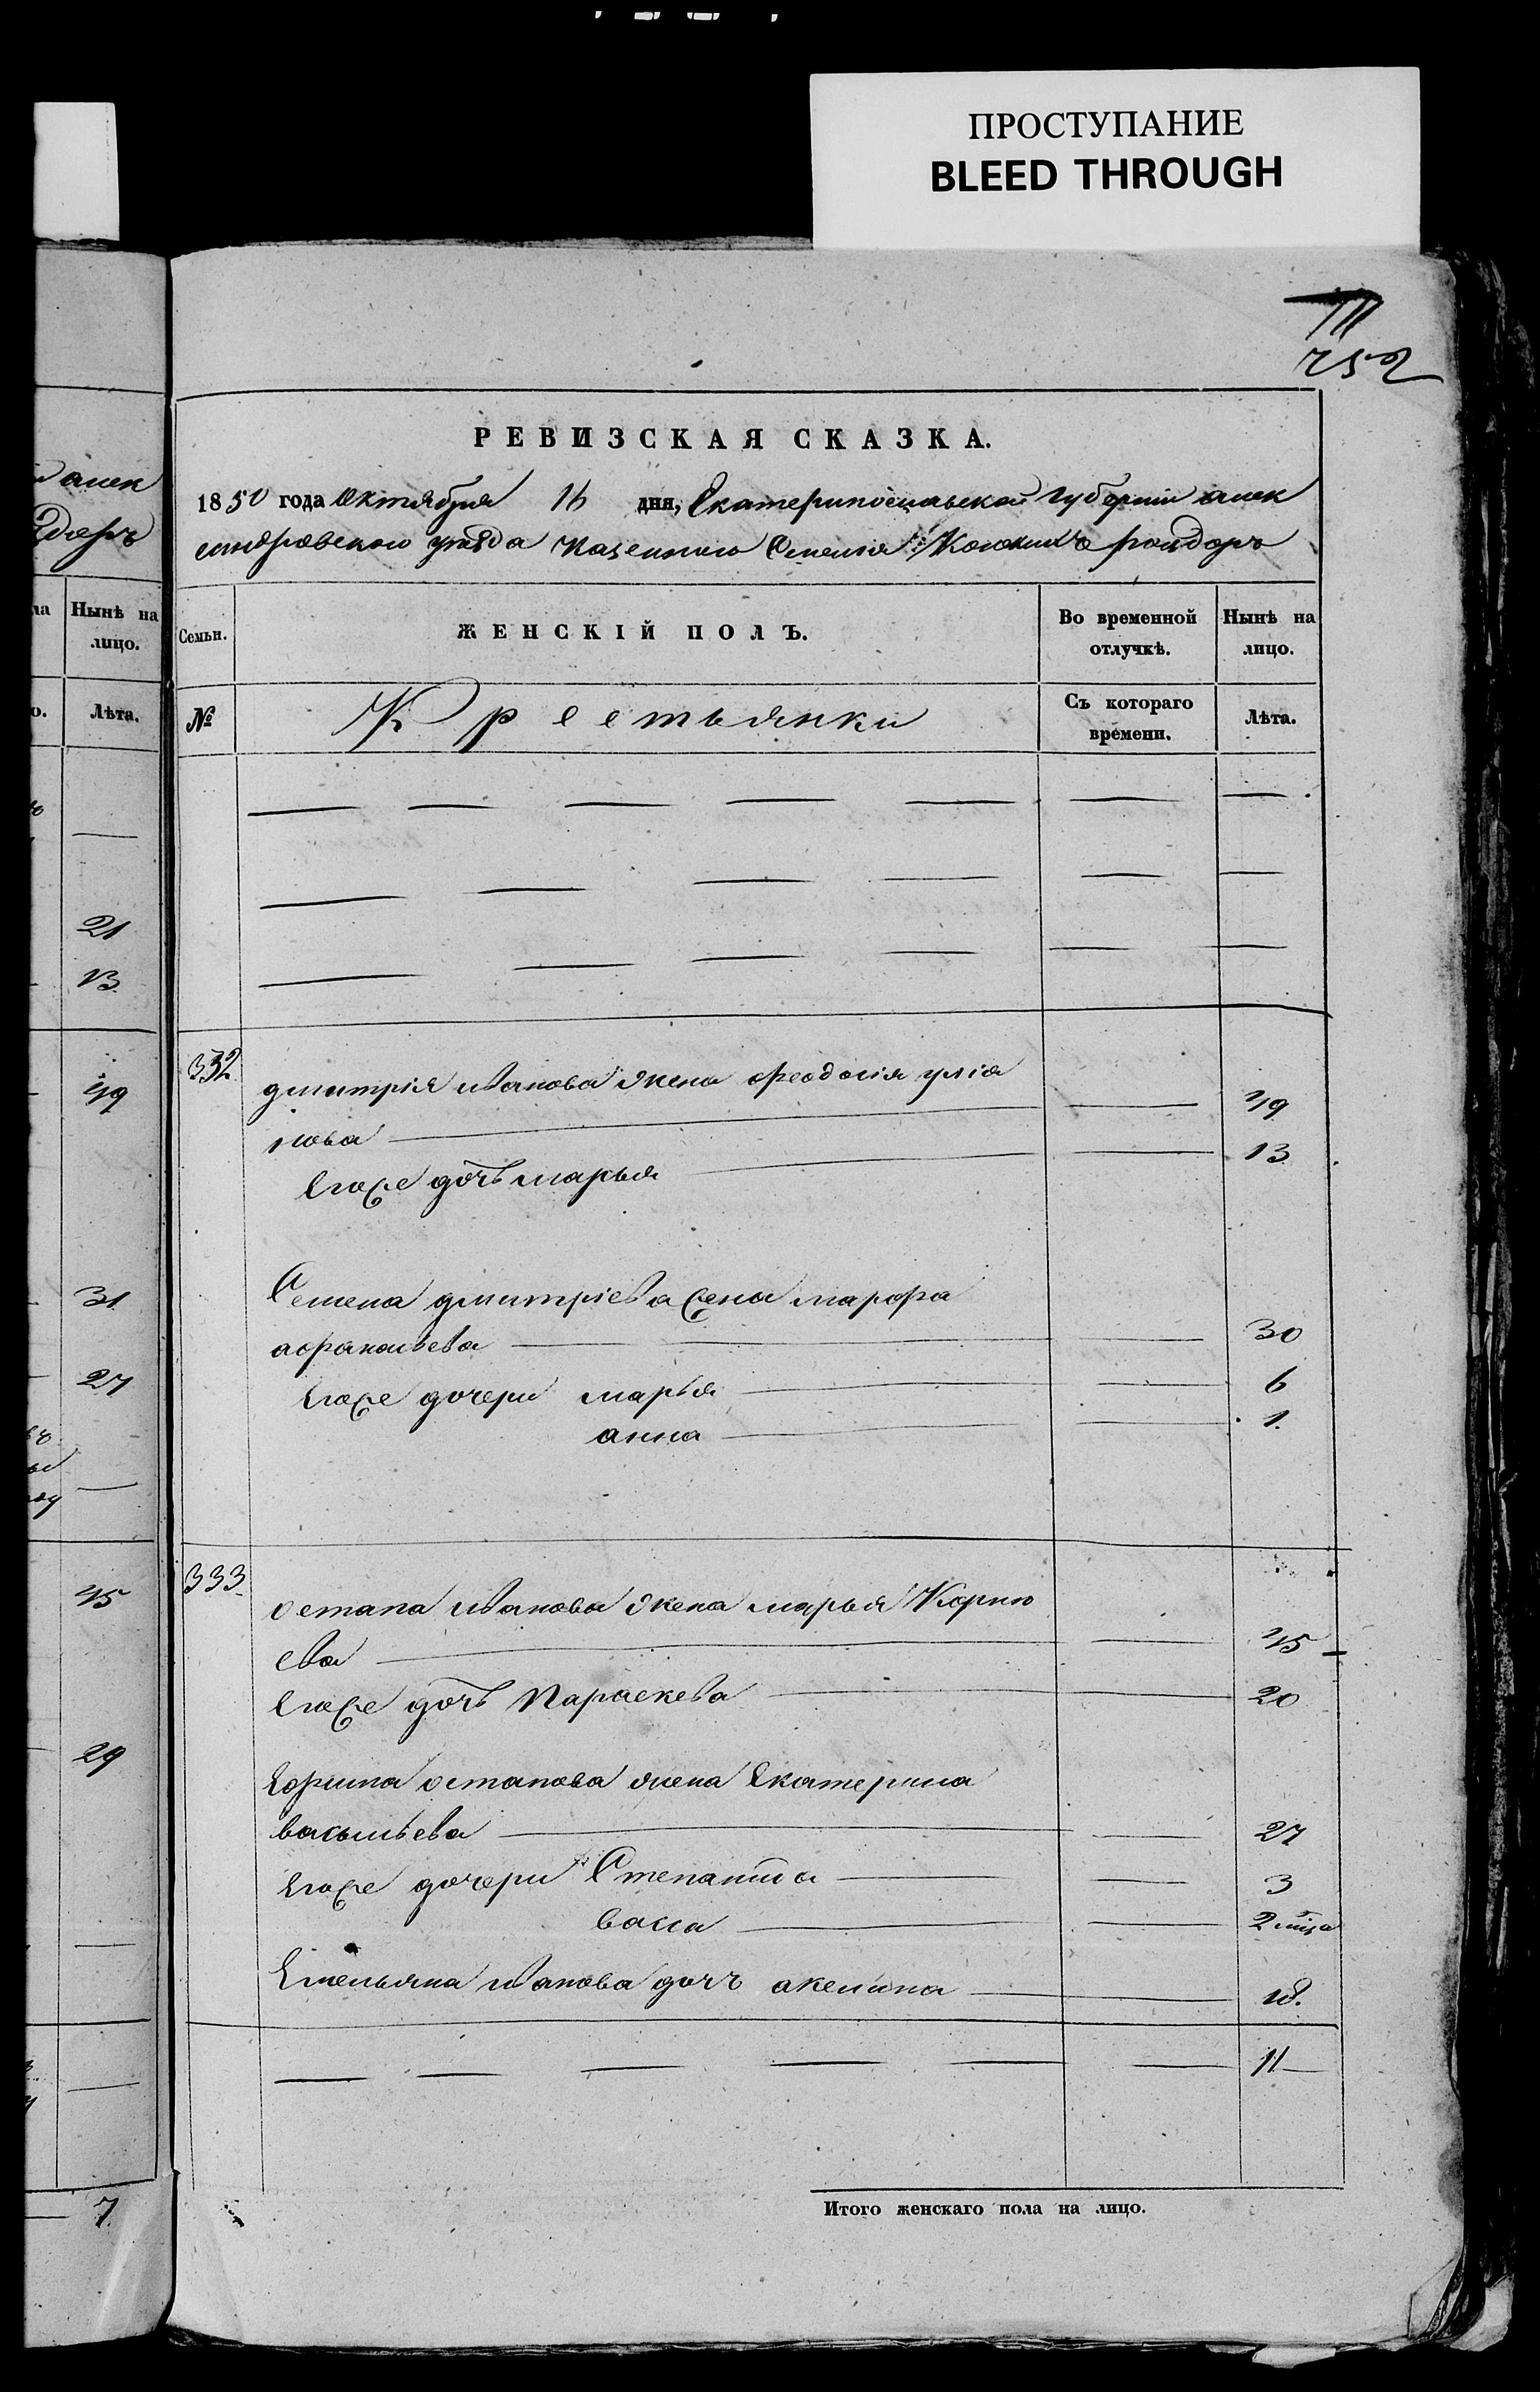 ПРОСТУПАНИЕ
BLEED THROUGH
252
РЕВИЗСКАЯ СКАЗКА.
1850 года Октября 16 дня, Екатеринославской губерніи алек
сандровского уезда казенного Селения Конскихъ роздоръ
Семьи.
ЖЕНСКІЙ ПОЛЪ.
Во временной отлучкѣ.
Нынѣ на лицо.
№
Крестьянки
Съ котораго времени.
Лѣта.
332
дмитрія иванова жена феодосія улія
нова 49
Егоже дочь марья 13
Семена дмитріева жена марфа
афанасьева 30
Егоже дочери марья 6
анна 1
333
остапа иванова жена марья Корне
ева 45
Егоже дочь Параскева 20
Ефима остапова жена Екатерина
васильева 27
Егоже дочери Степанида 3
васса 2 мца
Емельяна иванова дочь акелина 18.
11
Итого женскаго пола на лицо.
Нынѣ на лицо.
Лѣта.
21
13
49
31
27
45
29
7